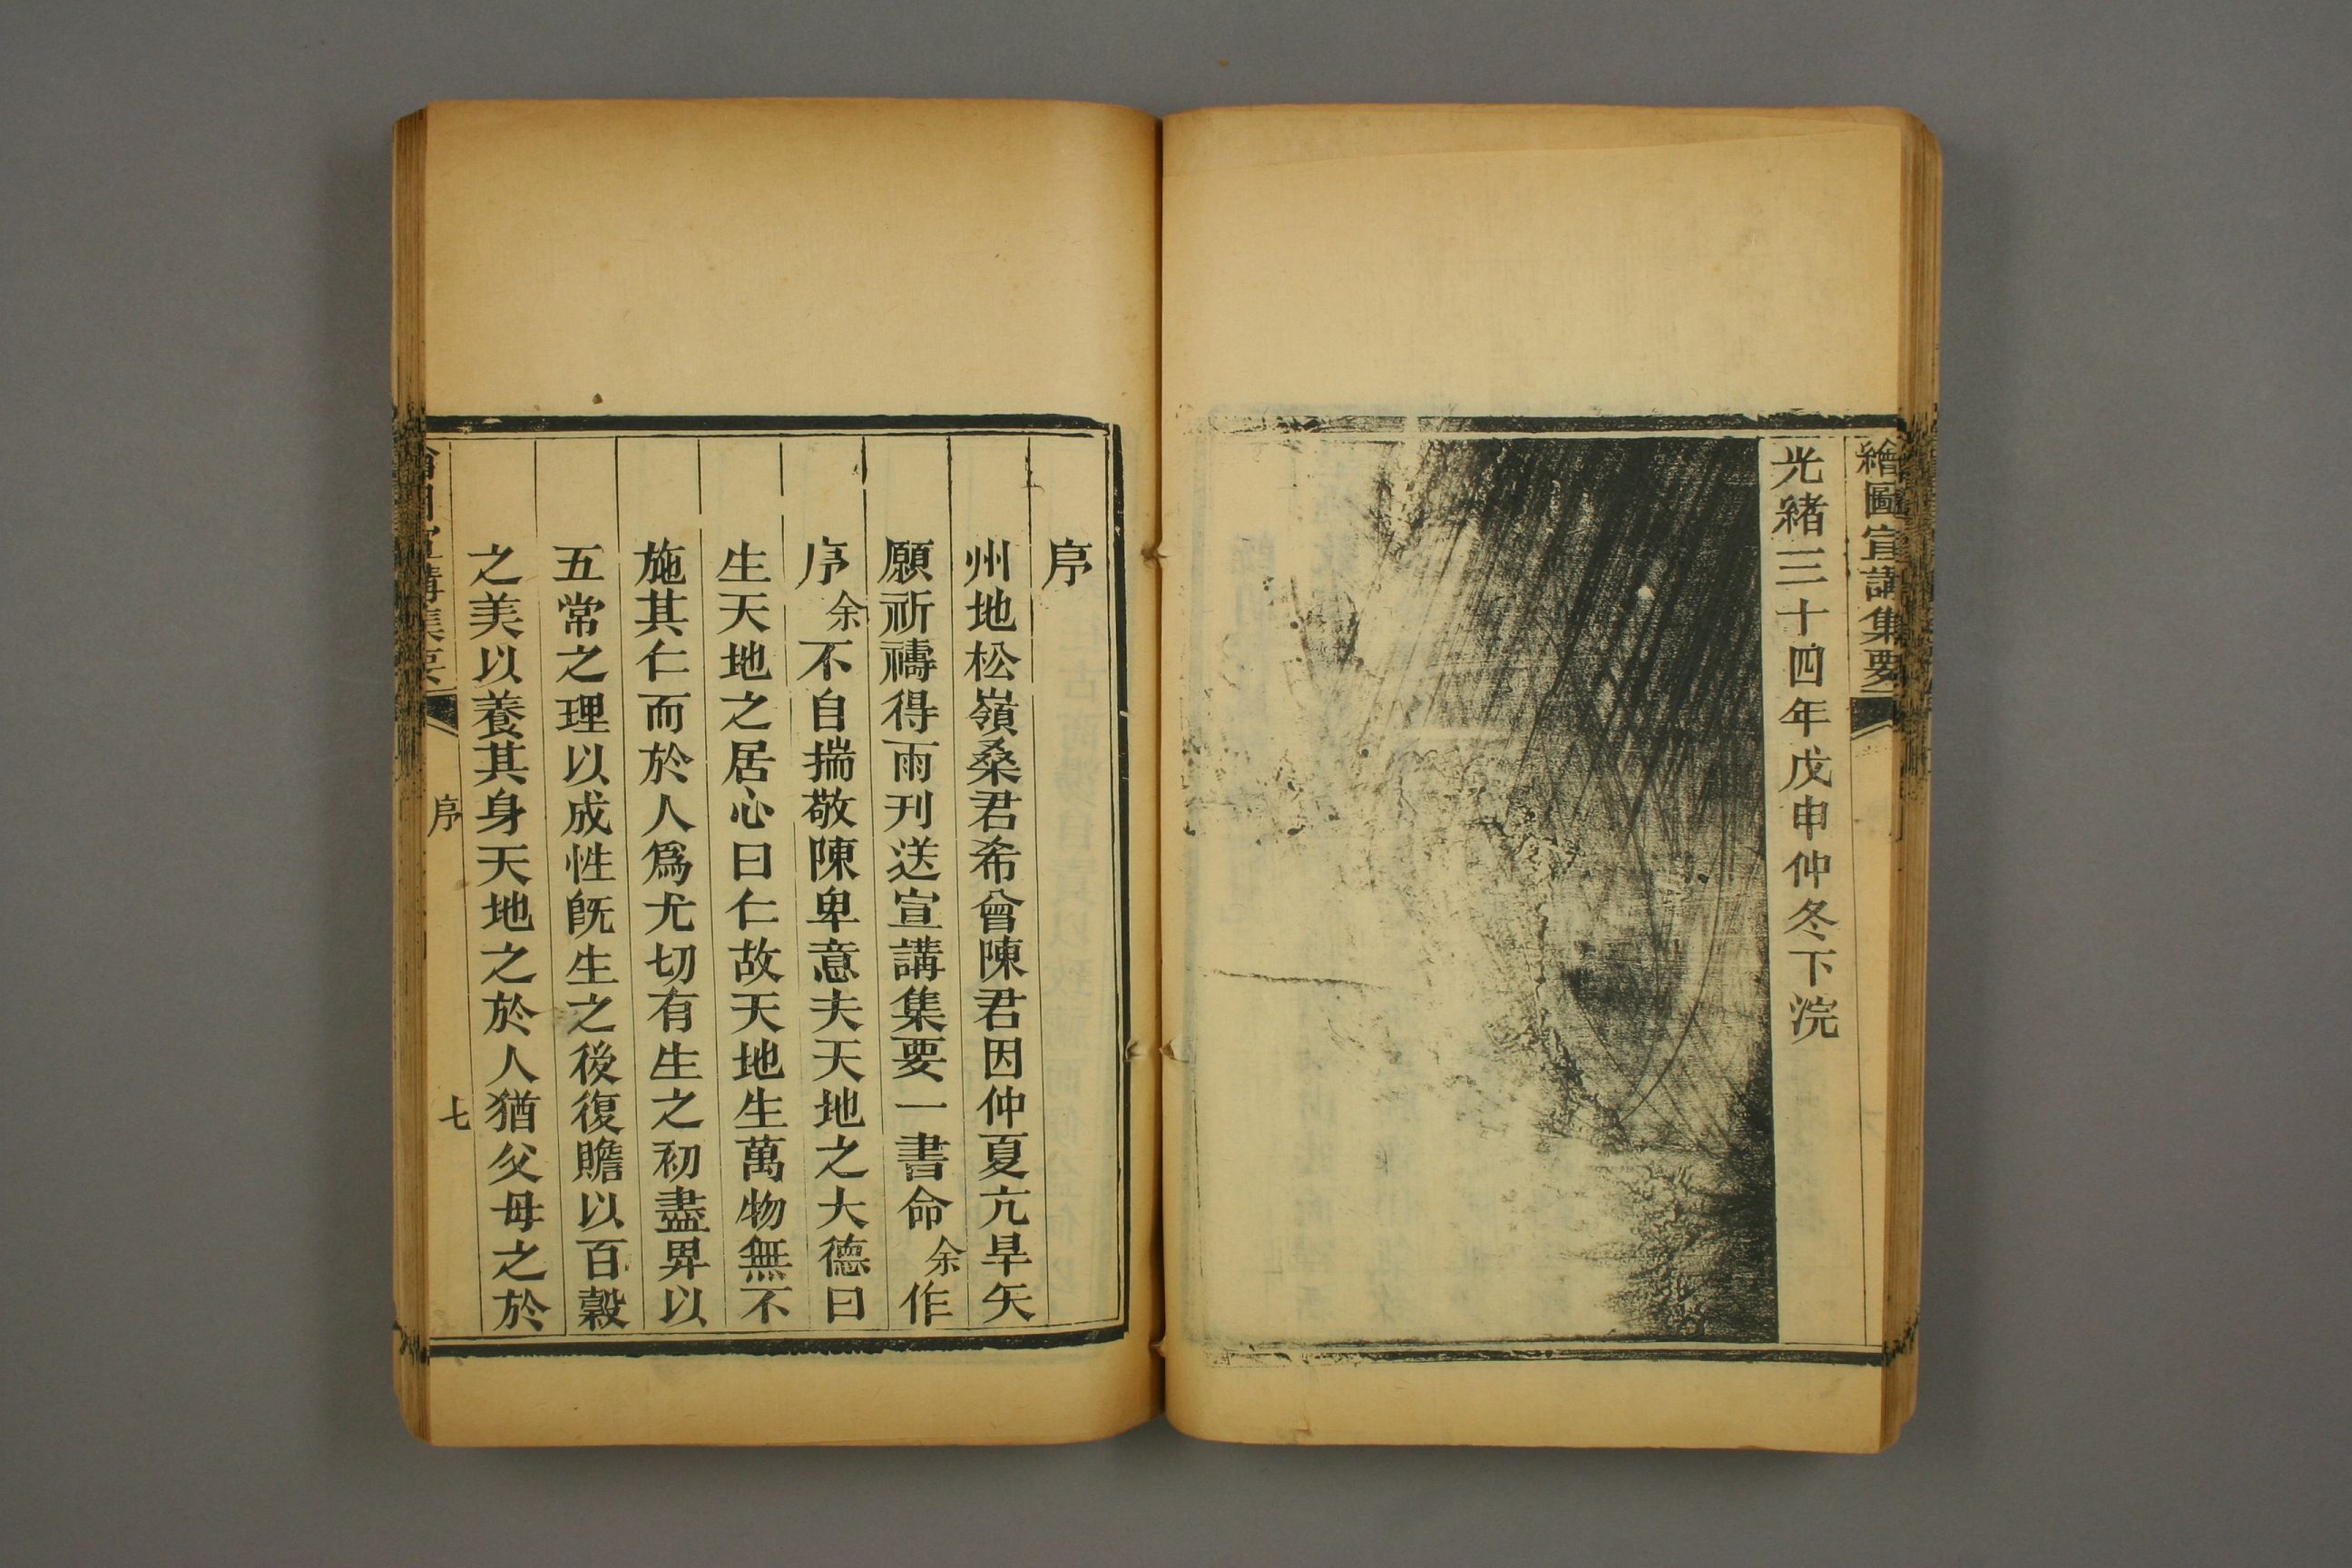 繪圖宣講集要
光緒三十四年戊申仲冬下浣
序
州地松嶺桑君希曾陳君因仲夏亢旱矢
願祈禱得雨刊送宣講集要一書命余作
序余不自揣敬陳卑意夫天地之大德曰
生天地之居心曰仁故天地生萬物無不
施其仁而於人爲尤切有生之初盡畀以
五常之理以成性旣生之後復贍以百穀
之美以養其身天地之於人猶父母之於
繪圖宣講集要
序
七